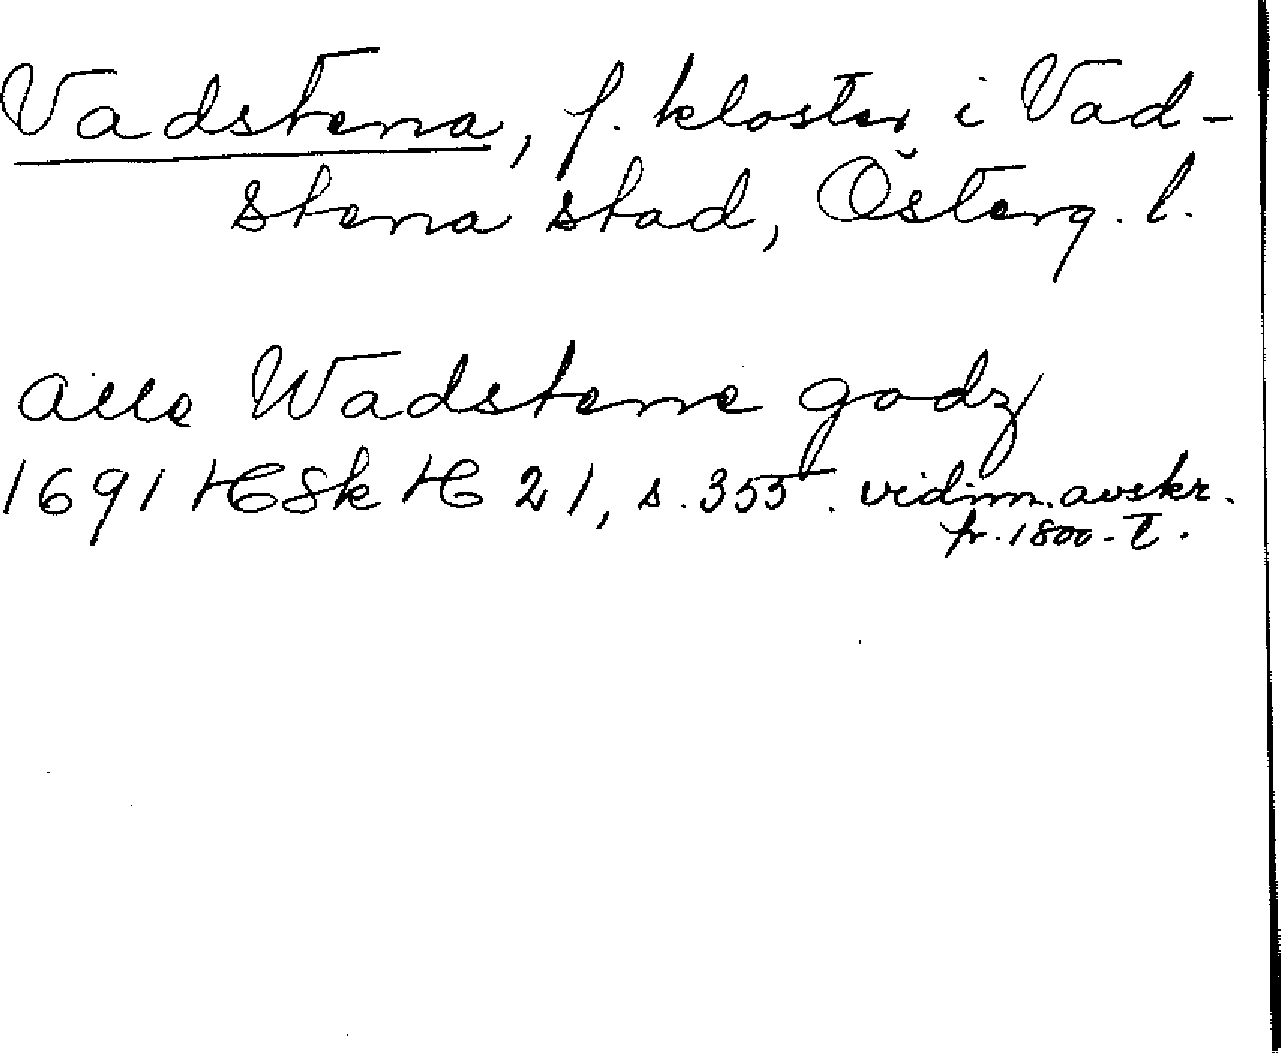 Vadstena, f. kloster i Vad-
stena stad, Österg. l.
alle Wadstene godz
1691 HSk H 21, s. 355. vidim. avskr.
fr. 1800-t.